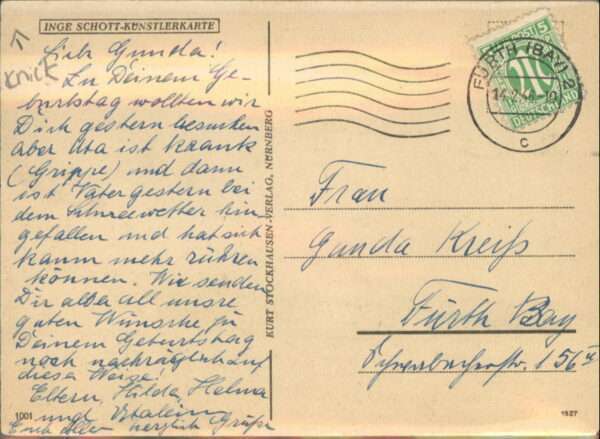 INGE SCHOTT-KÜNSTLERKARTE
Knick
Lieb Gunda!
Zu Deinem Ge-
burtstag wollten wir
Dich gestern besuchen
aber Uta ist krank
(Grippe) und dann
ist Vater gestern bei
dem Schneewetter hin
gefallen und hat sich
kaum mehr rühren
können. Wir senden
Dir alle all unsre
guten Wünsche zu
Deinem Geburtstag
noch nachträglich auf
diese Weise!
Eltern, Hilda, Helma
und
Euch allen herzlich Grüße
1001
KURT STOCKHAUSEN-VERLAG, NÜRNBERG
5
DEUTSCHLAND
FÜRTH (BAY) 2
c
Frau
Gunda Kreiß
Fürth Bay
156 II
1527